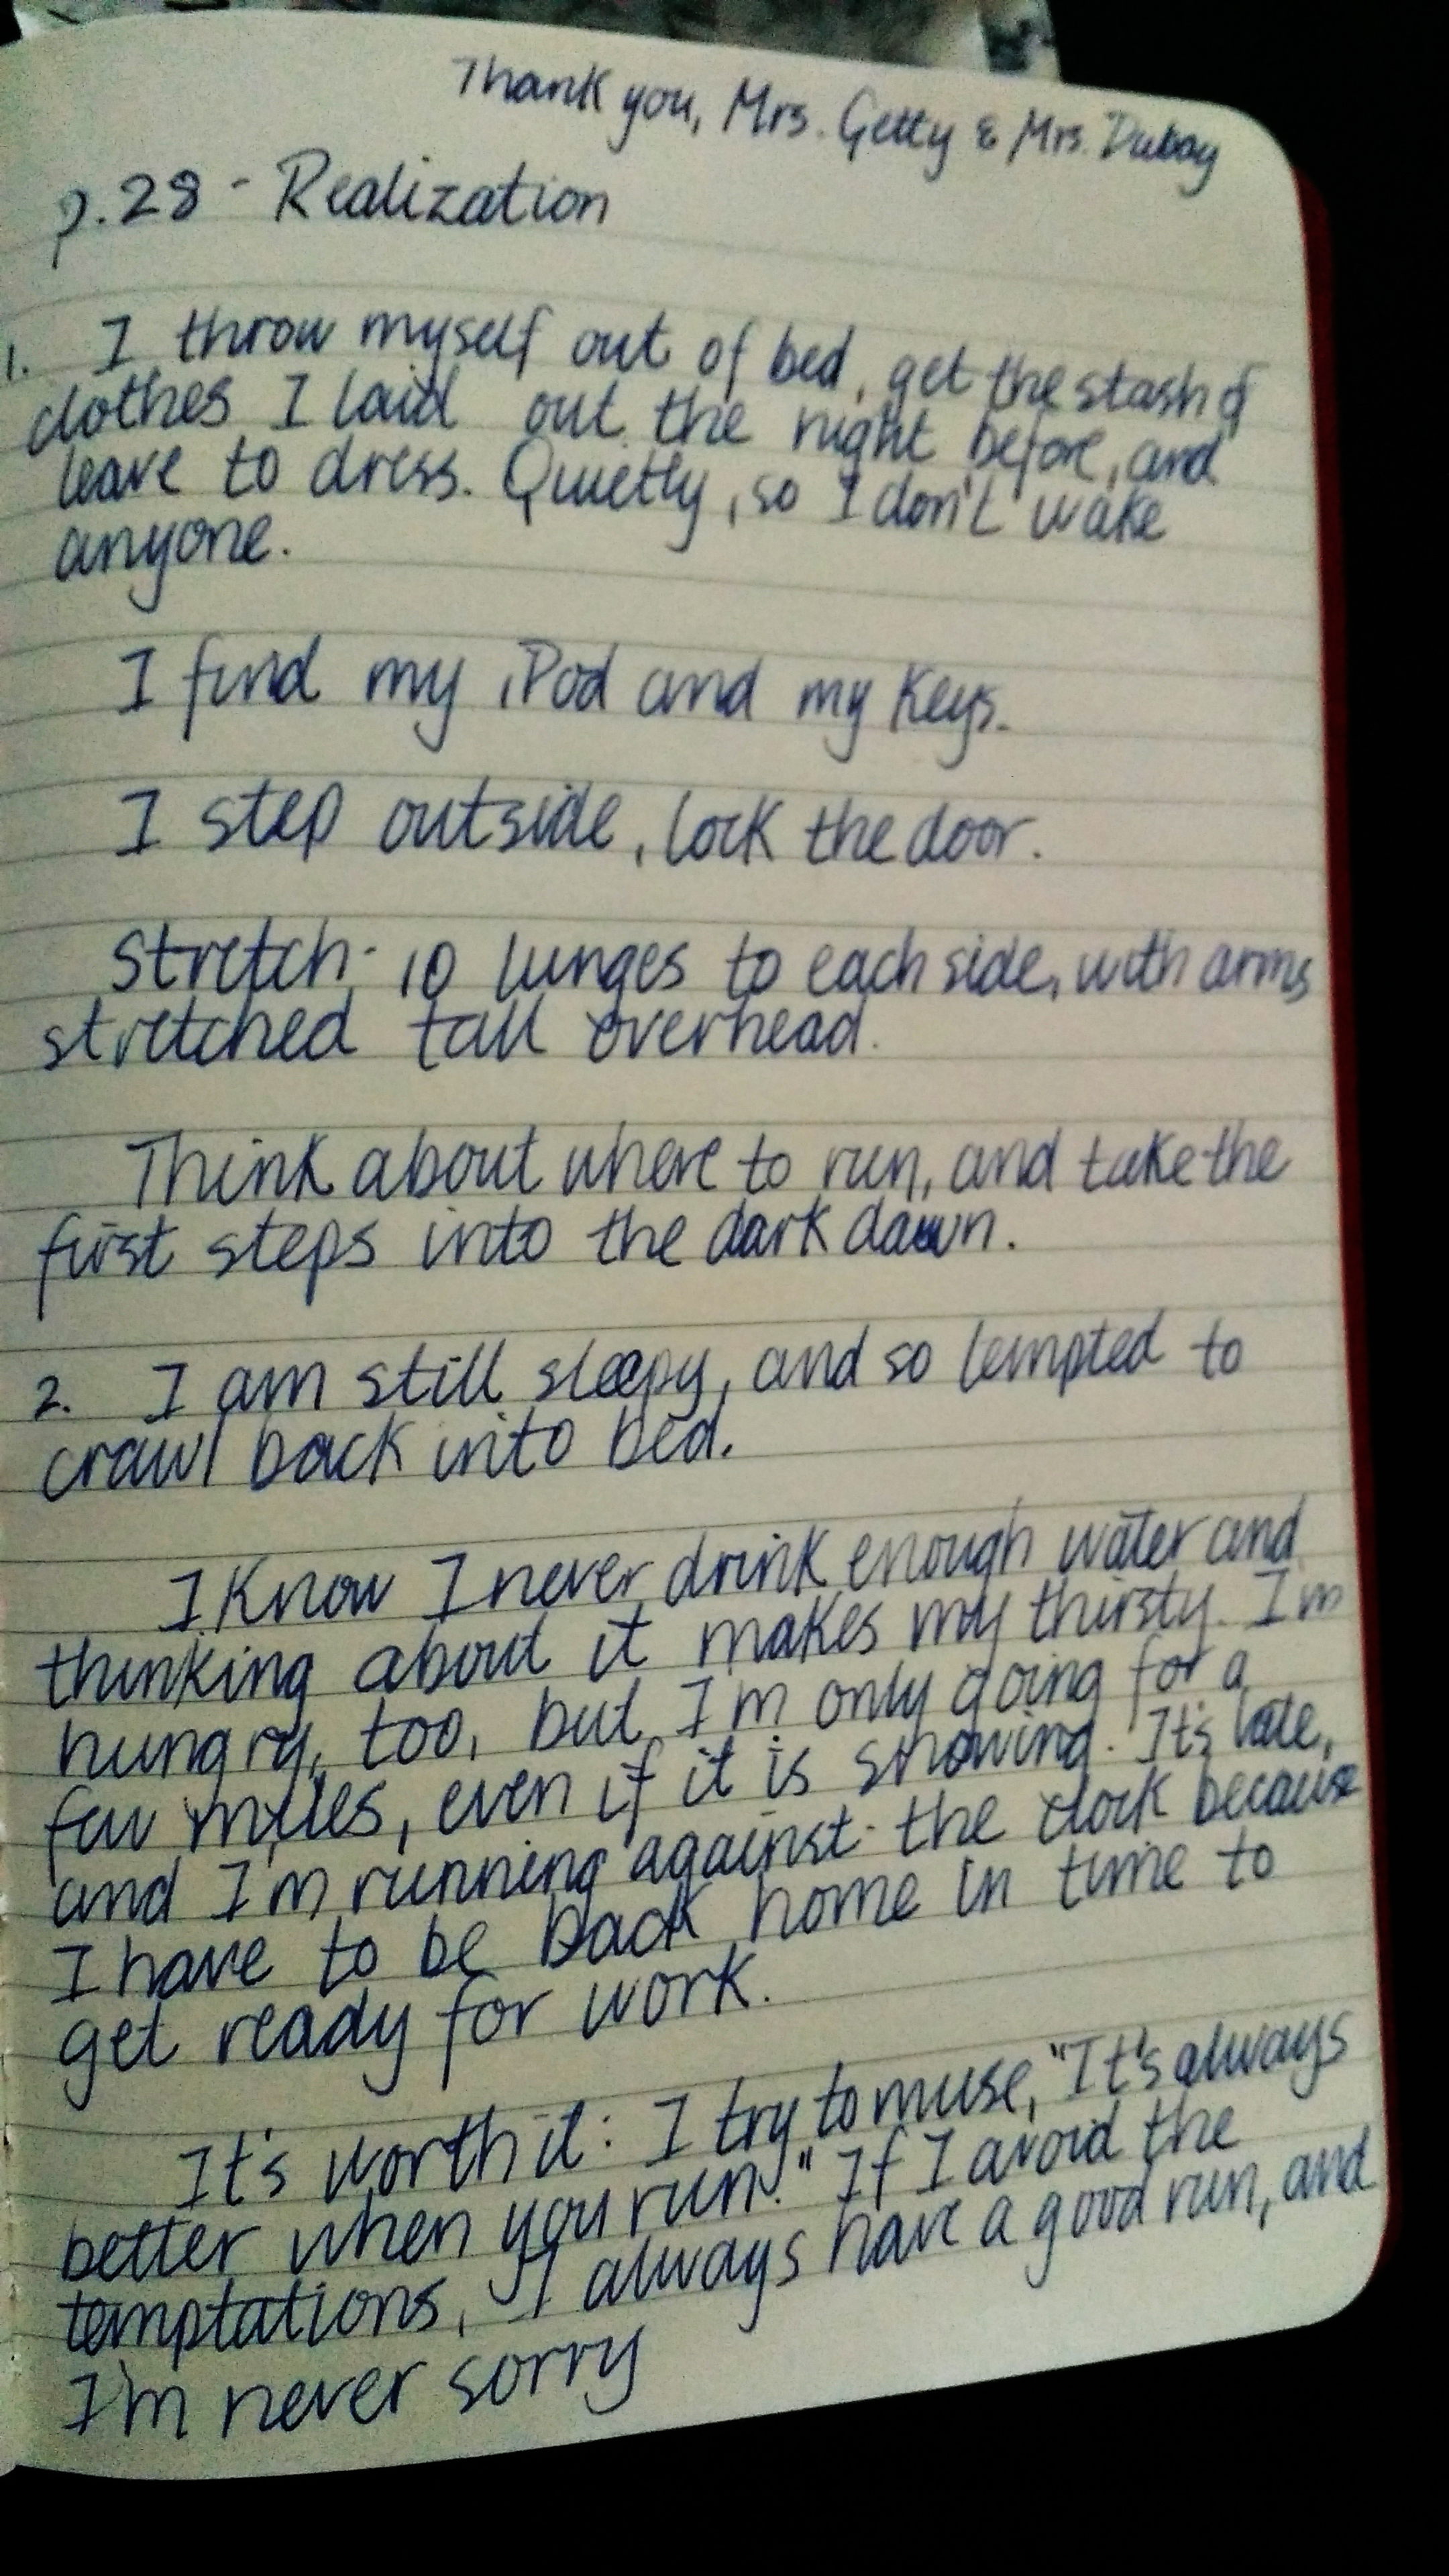 Thank you, Mrs. Getty & Mrs. Dubay
p.28 - Realization
1. I throw myself out of bed, get the stash of
clothes I laid out the night before, and
leave to dress. Quietly, so I don't wake
anyone.
I find my iPod and my keys.
I step outside, lock the door.
Stretch- 10 lunges to each side, with arms
stretched tall overhead.
Think about where to run, and take the
first steps into the dark dawn.
2. I am still sleepy, and so tempted to
crawl back into bed.
I know I never drink enough water and
thinking about it makes my thirsty. I'm
hungry, too, but I'm only going for a
few miles, even if it is snowing. It's late,
and I'm running against the clock because
I have to be back home in time to
get ready for work.
It's worth it: I try to muse, "It's always
better when you run." If I avoid the
temptations, I always have a good run, and
I'm never sorry